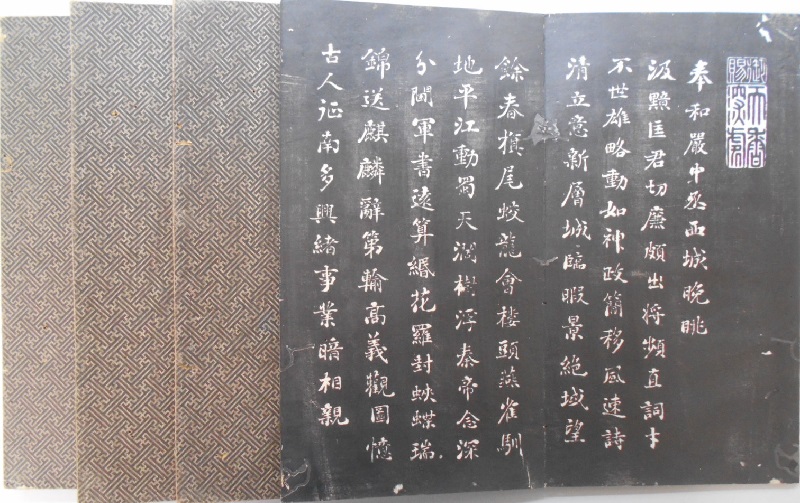 奉和嚴中丞西城晚眺
汲黯匡君切廉頗出將頻直詞才
不世雄略動如神政簡移風速詩
清立意新層城臨暇景絕域望
餘春旗尾蛟龍會樓頭燕雀馴
地平江動蜀天濶樹浮秦帝念深
分閫軍書遠算緡花羅封蛺蝶瑞
錦送麒麟辭第輸高義觀圖憶
古人征南多興緒事業暗相親